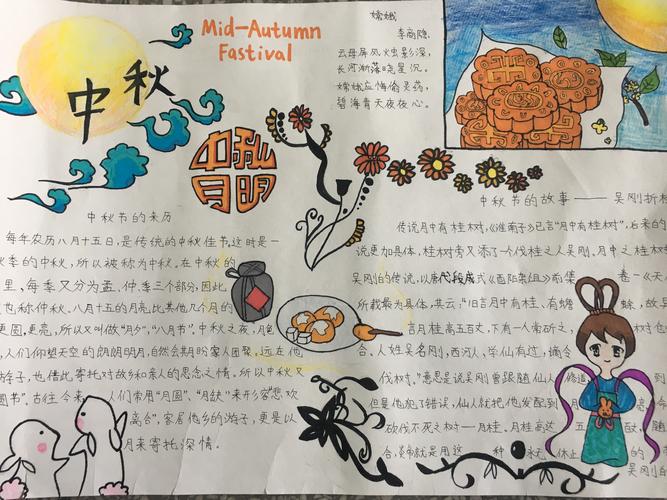 中秋
Mid-Autumn
Fastival
嫦娥
李商隐
云母屏风火虫影深,
长河渐落晓星沉。
嫦娥应悔偷灵药,
碧海青天夜夜心。
中秋
月明
中秋节的来历
每年农历八月十五日,是传统的中秋佳节。这时是一
秋季的中秋,所以被称为中秋。在中秋的
里,每季又分为孟、仲、季三个部分,因此
也称仲秋。八月十五的月亮比其他几个月的
更圆,更亮,所以又叫做"月夕","八月节"。中秋之夜,月色
,人们仰望天空的朗朗明月,自然会期盼家人团聚。远在他
游子,也借此寄托对故乡和亲人的思念之情。所以中秋又
圆节"。古往今来,人们常用"月圆"、"月缺"来形容"悲欢
离合",客居他乡的游子,更是以
月来寄托深情。
中秋节的故事——吴刚折桂
传说月中有桂树,《淮南子》已言"月中有桂树",后来的
说更加具体,桂树旁又添了一个伐桂之人吴刚。月中之桂树
吴刚的传说,以唐代段成式《酉阳杂俎》前集 卷一《天
所载最为具体,共云:"旧言月中有桂、有蟾 蜍,故异
言月桂高五百丈,下有一人常斫之, 树
合。人姓吴名刚,西河人,学仙有过,谪令
伐树。"意思是说吴刚曾跟随仙人 修道,
但是他犯了错误,仙人就把他发配到 月
砍伐不死之树——月桂。月桂高达 五
合, 就是用这 种 永 休止 的
吴刚的